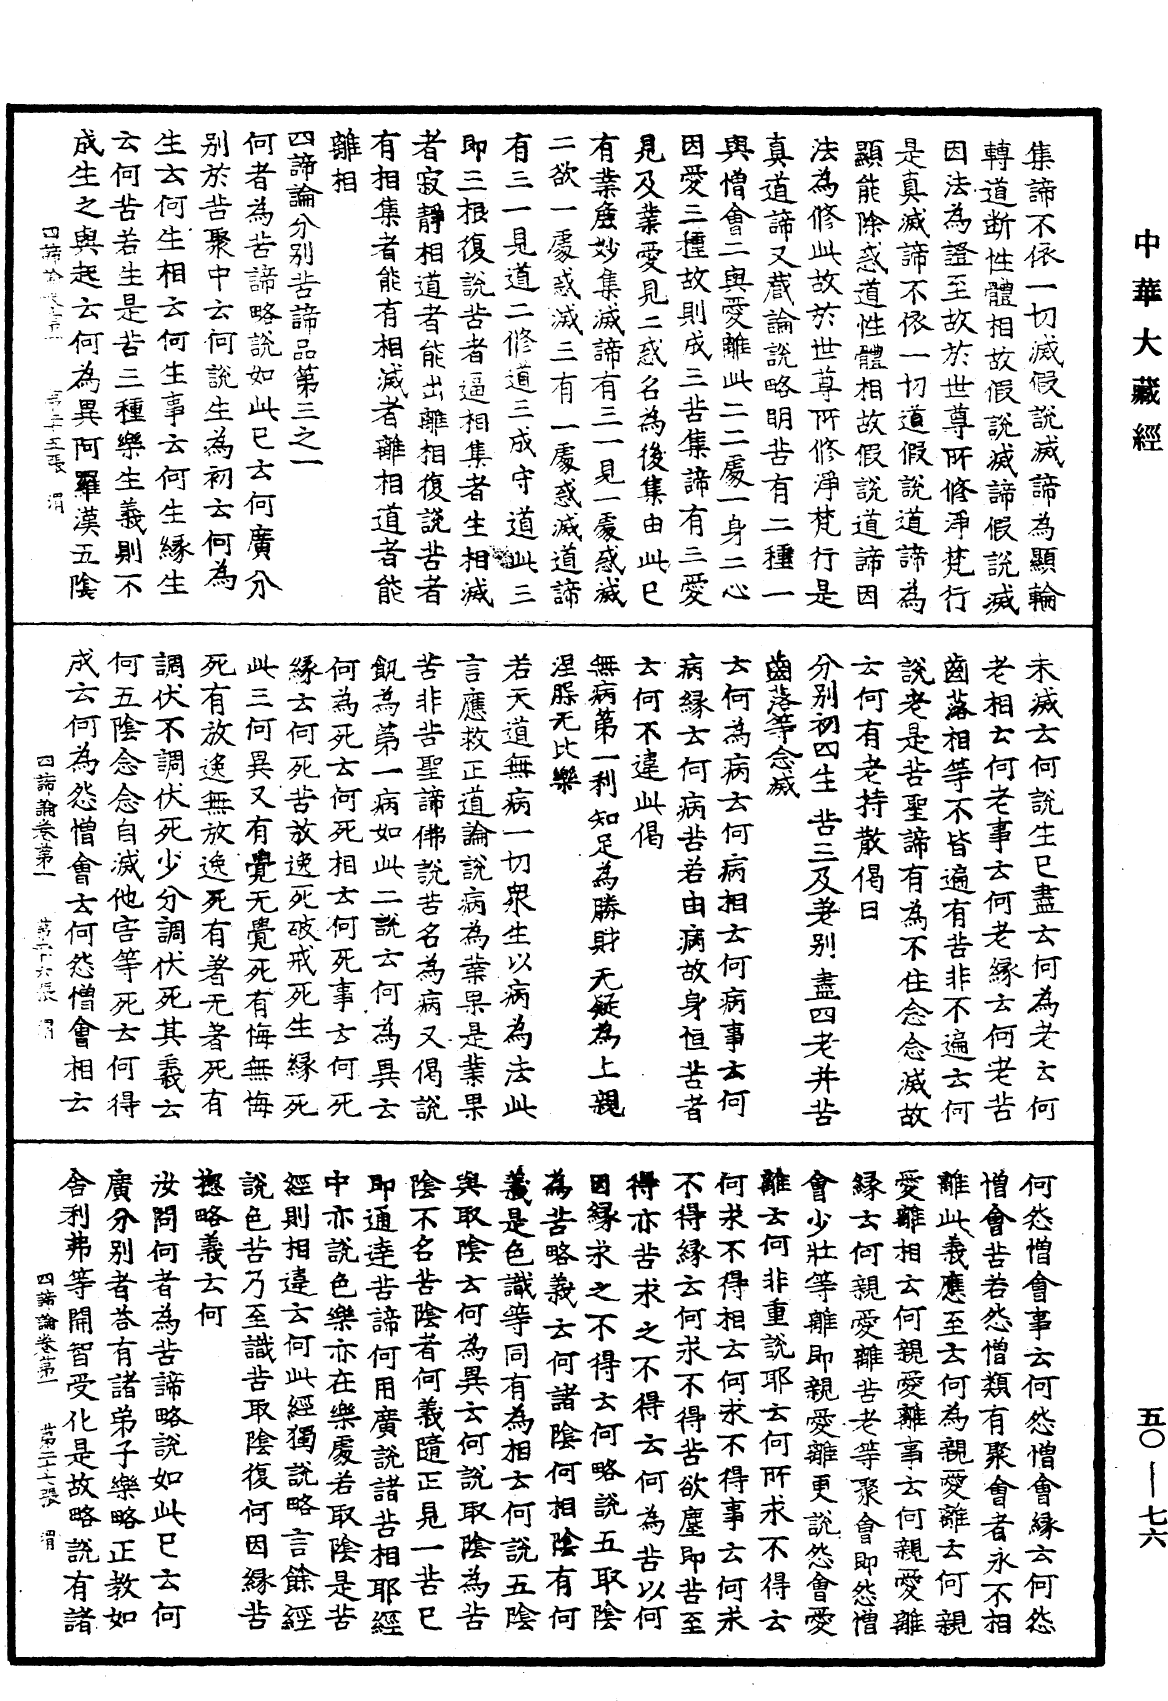 中華大藏經
集諦不依一切滅假說滅諦為顯輪
轉道斷性體相故假說滅諦假說滅
因法為證至故於世尊所修淨梵行
是真滅諦不依一切道假說道諦為
顯能除惑道性體相故假說道諦因
法為修此故於世尊所修淨梵行是
真道諦又藏論說略明苦有二種一
與憎會二與愛離此二二處一身二心
因愛三種故則成三苦集諦有三愛
見及業愛見二惑名為後集由此已
有業麁妙集滅諦有三一見一處惑滅
二欲一處惑滅三有一處惑滅道諦
有三一見道二修道三成守道此三
即三根復說苦者逼相集者生相滅
者寂靜相道者能出離相復說苦者
有相集者能有相滅者離相道者能
離相
四諦論分別苦諦品第三之一
何者為苦諦略說如此已云何廣分
別於苦聚中云何說生為初云何為
生云何生相云何生事云何生緣生
云何苦若生是苦三種樂生義則不
成生之與起云何為異阿羅漢五陰
未滅云何說生已盡云何為老云何
老相云何老事云何老緣云何老苦
齒落相等不皆遍有苦非不遍云何
說老是苦聖諦有為不住念念滅故
云何有老持散偈曰
分別初四生 苦三及老別 盡四老并苦
齒落等念滅
云何為病云何病相云何病事云何
病緣云何病苦若由病故身恒苦者
云何不違此偈
無病第一利 知足為勝財 无疑為上親
涅脲无比樂
若天道無病一切眾生以病為法此
言應救正道論說病為業果是業果
苦非苦聖諦佛說苦名為病又偈說
飢為第一病如此二說云何為異云
何為死云何死相云何死事云何死
緣云何死苦放逸死破戒死生緣死
此三何異又有覺无覺死有悔無悔
死有放逸無放逸死有著无著死有
調伏不調伏死少分調伏死其義云
何五陰念念自滅他害等死云何得
成云何為怨憎會云何怨憎會相云
何怨憎會事云何怨憎會緣云何怨
憎會苦若怨憎類有聚會者永不相
離此義應至云何為親愛離云何親
愛離相云何親愛離事云何親愛離
緣云何親愛離苦老等聚會即怨憎
會少壯等離即親愛離更說怨會愛
離云何非重說耶云何所求不得云
何求不得相云何求不得事云何求
不得緣云何求不得苦欲塵即苦至
得亦苦求之不得云何為苦以何
因緣求之不得云何略說五取陰
為苦略義云何諸陰何相陰有何
義是色識等同有為相云何說五陰
與取陰云何為異云何說取陰為苦
陰不名苦陰者何義隨正見一苦已
即通達苦諦何用廣說諸苦相耶經
中亦說色樂亦在樂處若取陰是苦
經則相違云何此經獨說略言餘經
說色苦乃至識苦取陰復何因緣苦
揔略義云何
汝問何者為苦諦略說如此已云何
廣分別者荅有諸弟子樂略正教如
舍利弗等開智受化是故略說有諸
四諦論卷第一 第二十六張 渭
四諦論卷第一 第二十七張 渭
五〇—七六